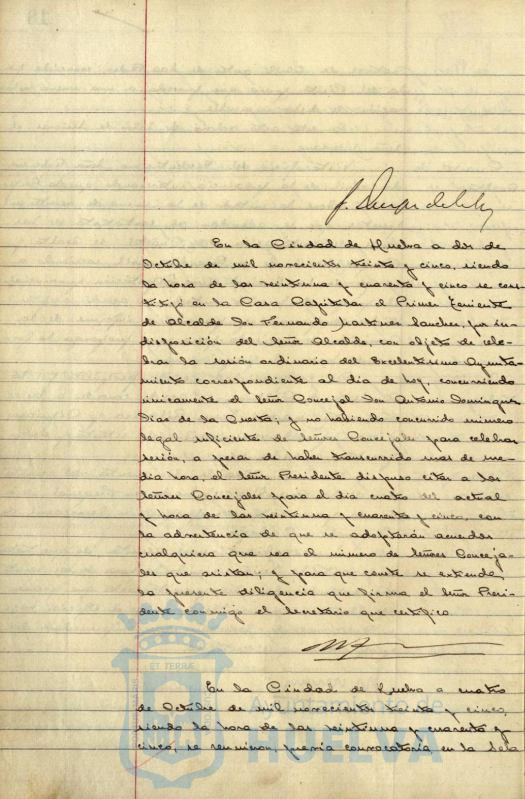 En la Ciudad de Huelva a dos de
Octubre de mil novecientos treinta y cinco, siendo
la hora de las veintiuna y cuarenta y cinco se cons-
tituyó en la Casa Capitular el Primer Teniente
de Alcalde Don Fernando Martinez Sanchez, por in-
disposición del Señor Alcalde, con objeto de cele-
brar la sesión ordinaria del Excelentisimo Ayunta-
miento correspondiente al dia de hoy, concurriendo
únicamente el Señor Concejal Don Antonio Dominguez
Dias de la Cuesta; y no habiendo concurrido número
legal suficiente de Señores Concejales para celebrar
sesión, a pesar de haber transcurrido mas de me-
dia hora, el Señor Presidente dispuso citar a los
Señores Concejales para el dia cuatro del actual
y hora de las veintiuna y cuarenta y cinco, con
la advertencia de que se adoptarán acuerdos
cualquiera que sea el número de Señores Conceja-
les que asistan; y para que conste se extiende
la presente diligencia que firma el Señor Presi-
dente conmigo el Secretario que certifico.
En la Ciudad de Huelva a cuatro
de Octubre de mil novecientos treinta y cinco,
siendo la hora de las veintiuna y cuarenta y
cinco, se reunieron, previa convocatoria en la Sala
ET TERRÆ
Ayuntamiento de
HUELVA